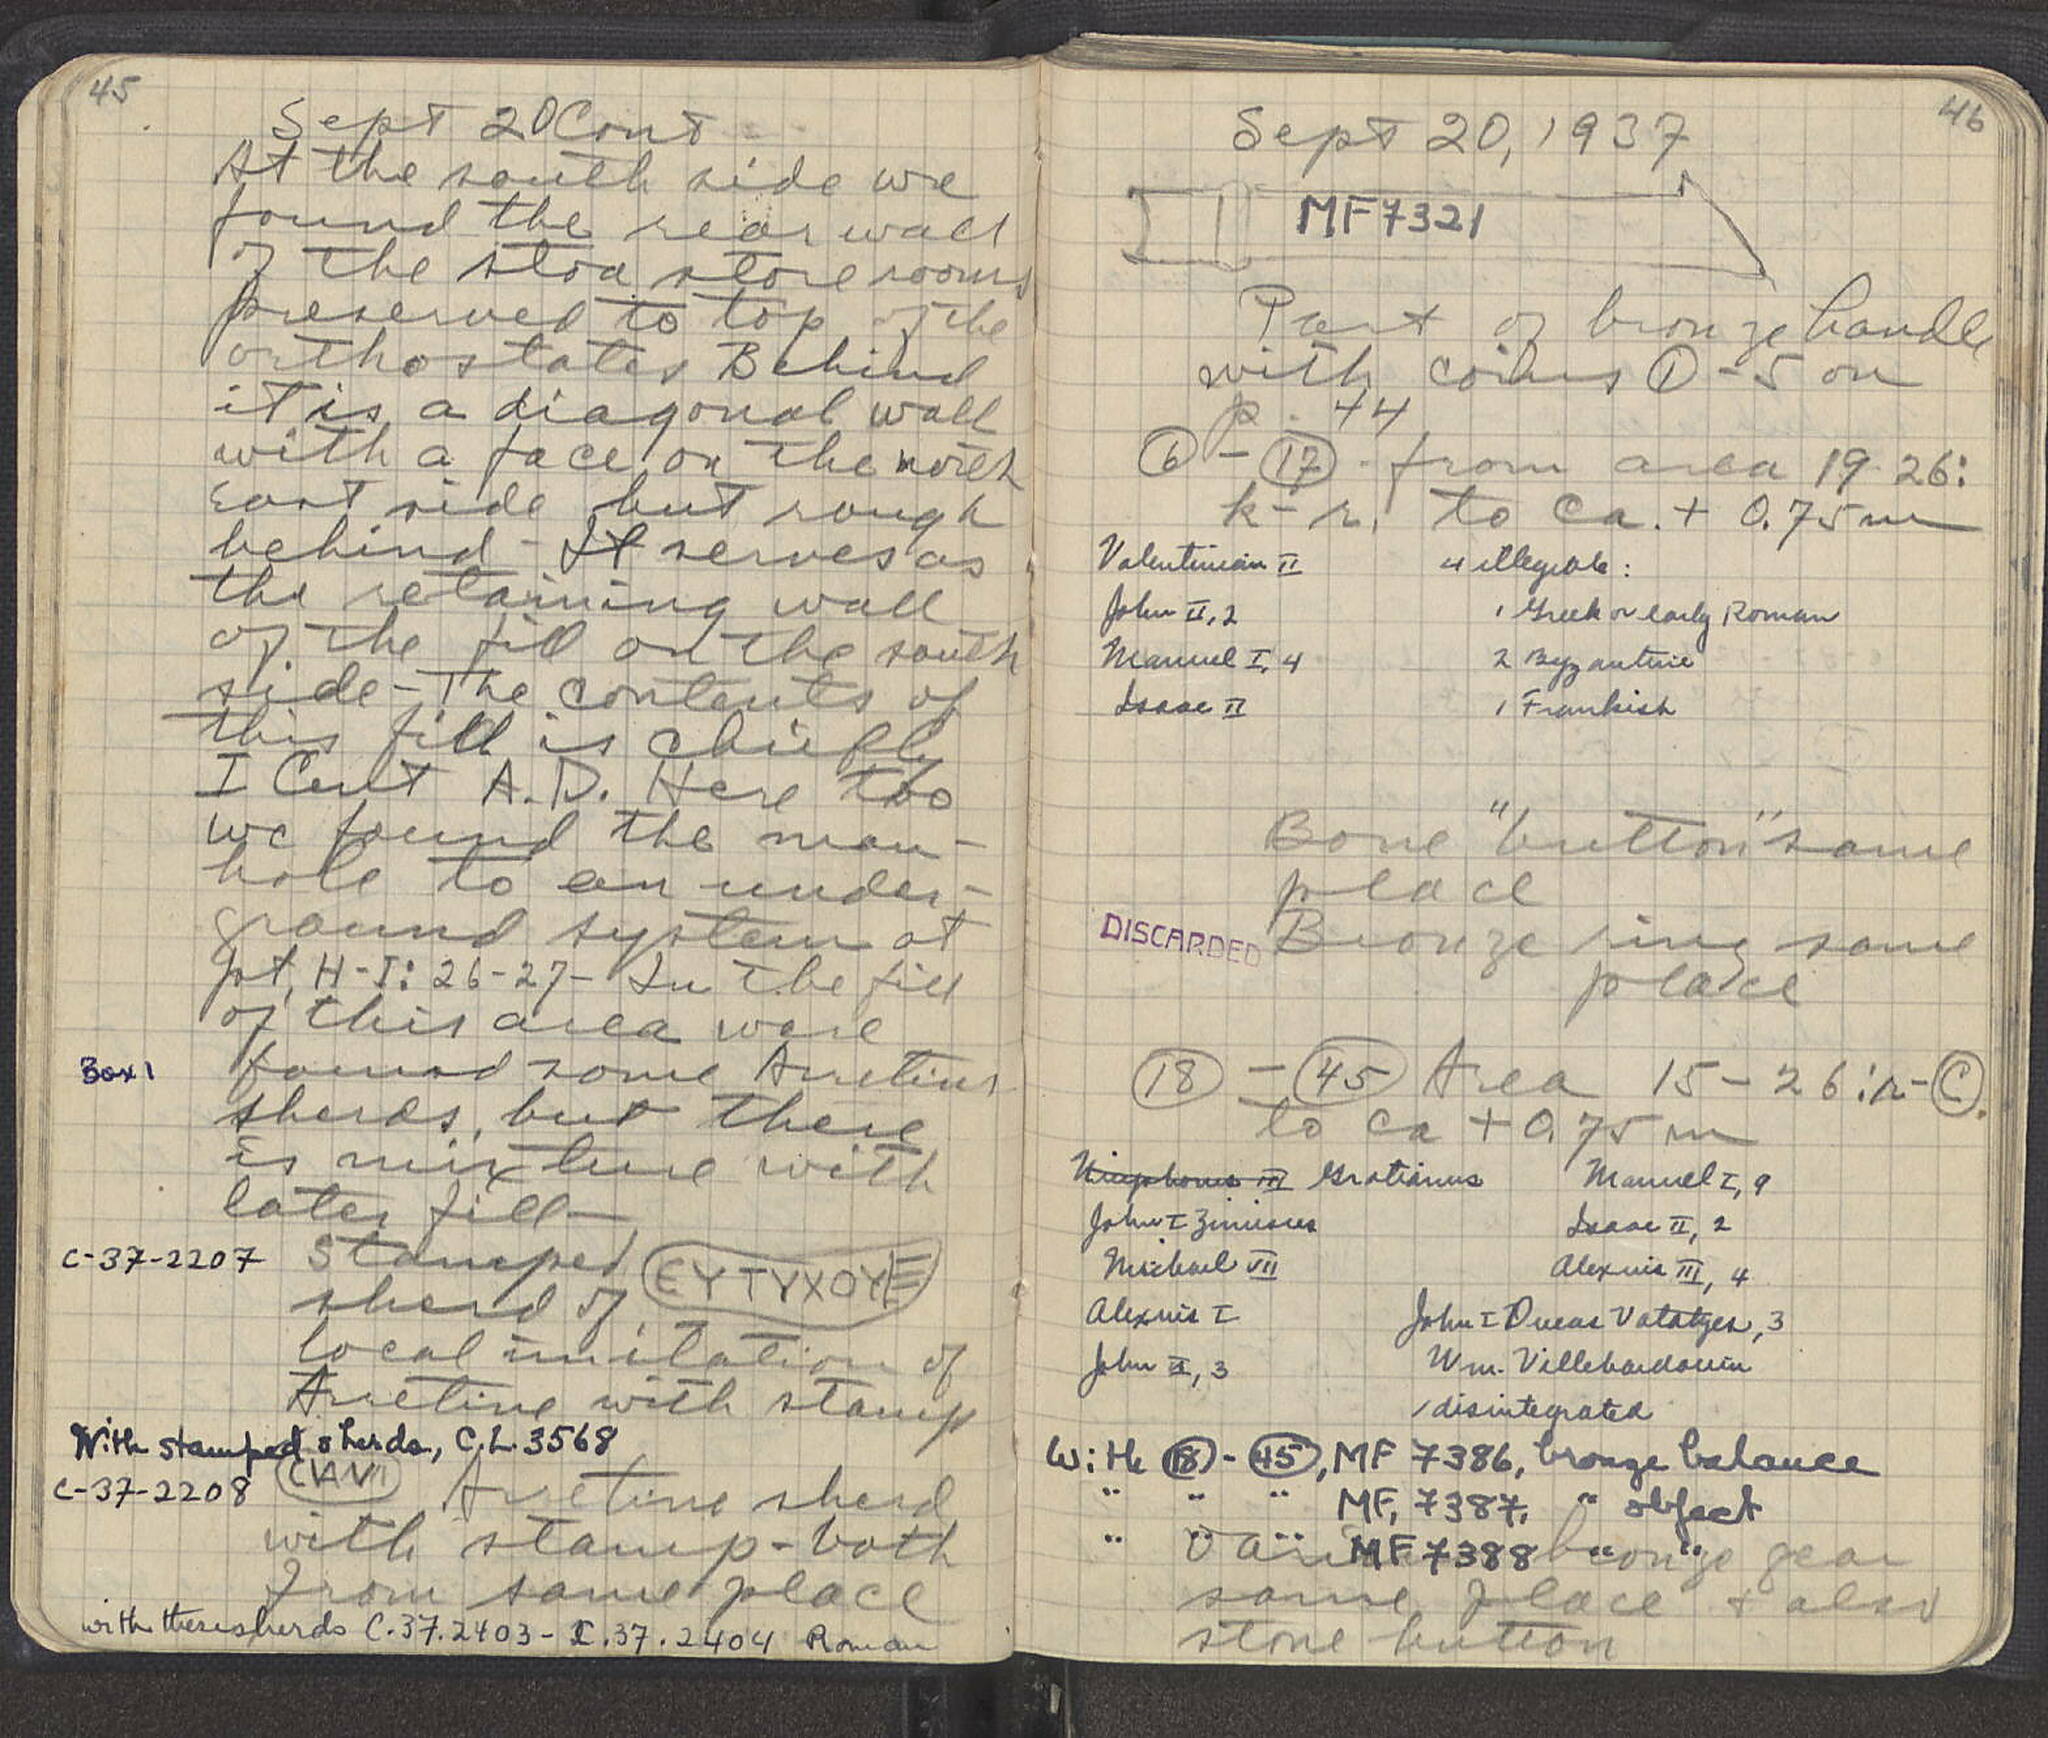 45
Sept 20 Cont
At the south side we
found the rear wall
of the stoa store rooms
preserved to top of the
orthostates Behind
it is a diagonal wall
with a face on the north
East side but rough
behind - It serves as
the retaining wall
of the fill on the south
side - The contents of
this fill is chiefly
I Cent A.D. Here too
we found the man-
hole to an under-
ground system at
pt. H-I: 26-27 - In the fill
of this area were
Box 1 found some Arretine
sherds, but there
is mixture with
later fill -
C-37-2207 Stamped ΕΥΤΥΧΟΥΣ
sherd of
local imitation of
Arretine with stamp
With stamped sherds, C.L. 3568
C-37-2208 Arretine sherd
with stamp - both
from same place
with these sherds C.37.2403 - C.37.2404 Roman
46
Sept 20, 1937
MF7321
Part of bronze handle
with coins 1 - 5 on
p. 44
6 - 17 from area 19-26:
k-r. to ca. + 0.75 m
Valentinian II 4 illegible:
John II, 2 1 Greek or early Roman
Manuel I, 4 2 Byzantine
Isaac II 1 Frankish
Bone "button" same
place
DISCARDED Bronze ring same
place
18 - 45 Area 15-26: r-C.
to ca + 0.75 m
Nicephorus III Gratianus Manuel I, 9
John I Zimisces Isaac II, 2
Michael VII Alexius III, 4
Alexius I John I Ducas Vatatzes, 3
John II, 3 Wm. Villehardouin
1 disintegrated
With 18 - 45, MF 7386, bronze balance
" " " MF, 7387, " object
" " " MF 7388 " "
bronze gear
same place + also
stone button